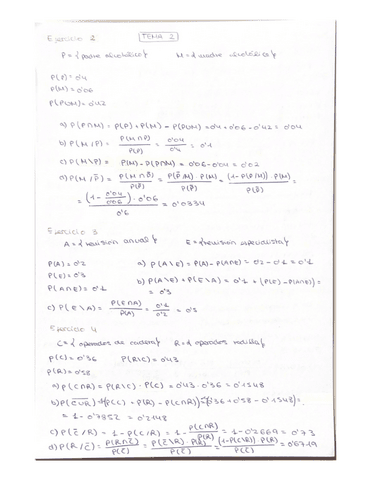 Ejercicio 2 TEMA 2
P = {padre alcohólico} M = {madre alcohólica}
P(P) = 0'4
P(M) = 0'06
P(P∪M) = 0'42
a) P(P∩M) = P(P) + P(M) - P(P∪M) = 0'4 + 0'06 - 0'42 = 0'04
b) P(M/P) = P(M∩P)/P(P) = 0'04/0'4 = 0'1
c) P(M\P) = P(M) - P(P∩M) = 0'06 - 0'04 = 0'02
d) P(M/P̄) = P(M∩P̄)/P(P̄) = P(P̄/M)·P(M)/P(P̄) = (1-P(P/M))·P(M)/P(P̄) =
= (1 - 0'04/0'06)·0'06/0'6 = 0'0334
Ejercicio 3
A = {revisión anual} E = {revisión especialista}
P(A) = 0'2 a) P(A\E) = P(A) - P(A∩E) = 0'2 - 0'1 = 0'1
P(E) = 0'3 b) P(A\E) + P(E\A) = 0'1 + (P(E) - P(A∩E)) =
P(A∩E) = 0'1 = 0'3
c) P(E\A) = P(E∩A)/P(A) = 0'1/0'2 = 0'5
Ejercicio 4
C = {operados de cadera} R = {operados rodilla}
P(C) = 0'36 P(R\C) = 0'43
P(R) = 0'58
a) P(C∩R) = P(R\C)·P(C) = 0'43·0'36 = 0'1548
= 1 - 0'7852 = 0'2148
c) P(C̄/R) = 1 - P(C/R) = 1 - P(C∩R)/P(R) = 1 - 0'2669 = 0'73
d) P(R/C̄) = P(R∩C̄)/P(C̄) = P(C̄\R)·P(R)/P(C̄) = (1-P(C\R))·P(R)/P(C̄) = 0'6719